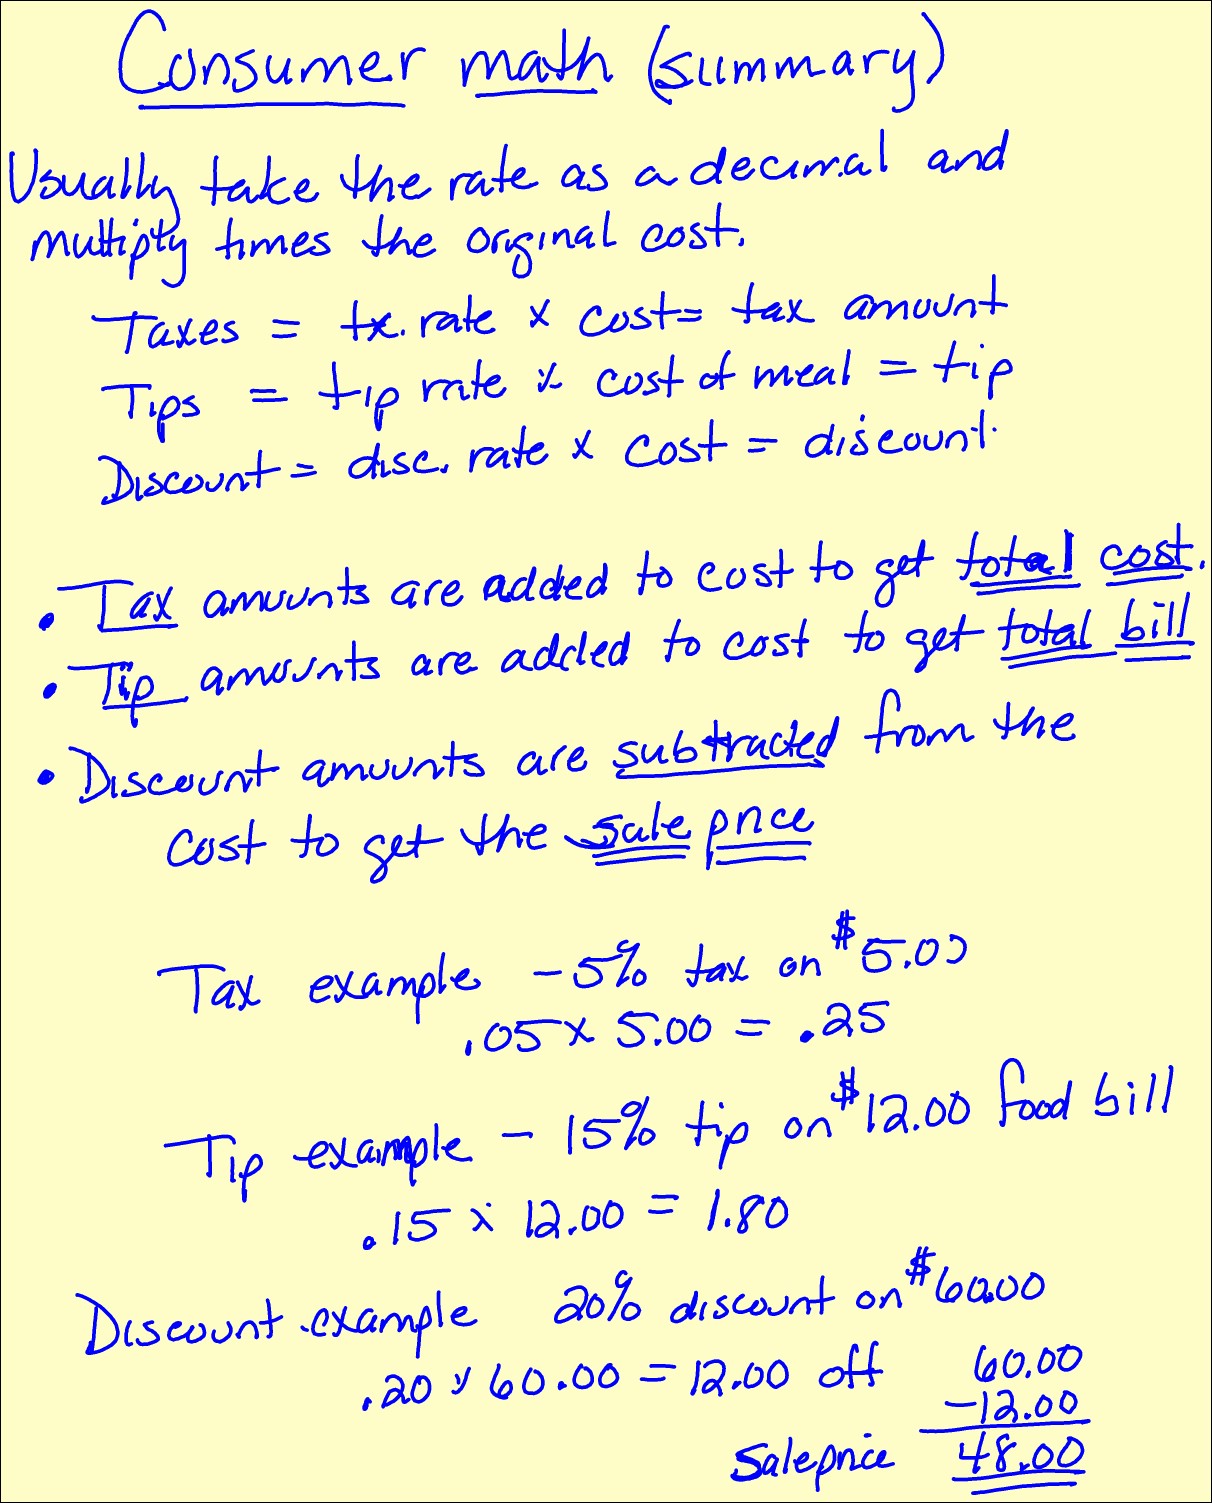 Consumer math (summary)
Usually take the rate as a decimal and
multiply times the original cost.
Taxes = tx. rate x cost = tax amount
Tips = tip rate x cost of meal = tip
Discount = disc. rate x cost = discount
• Tax amounts are added to cost to get total cost.
• Tip amounts are added to cost to get total bill
• Discount amounts are subtracted from the
cost to get the sale price
Tax example - 5% tax on $5.00
.05 x 5.00 = .25
Tip example - 15% tip on $12.00 food bill
.15 x 12.00 = 1.80
Discount example 20% discount on $60.00
.20 x 60.00 = 12.00 off 60.00
-12.00
Sale price 48.00